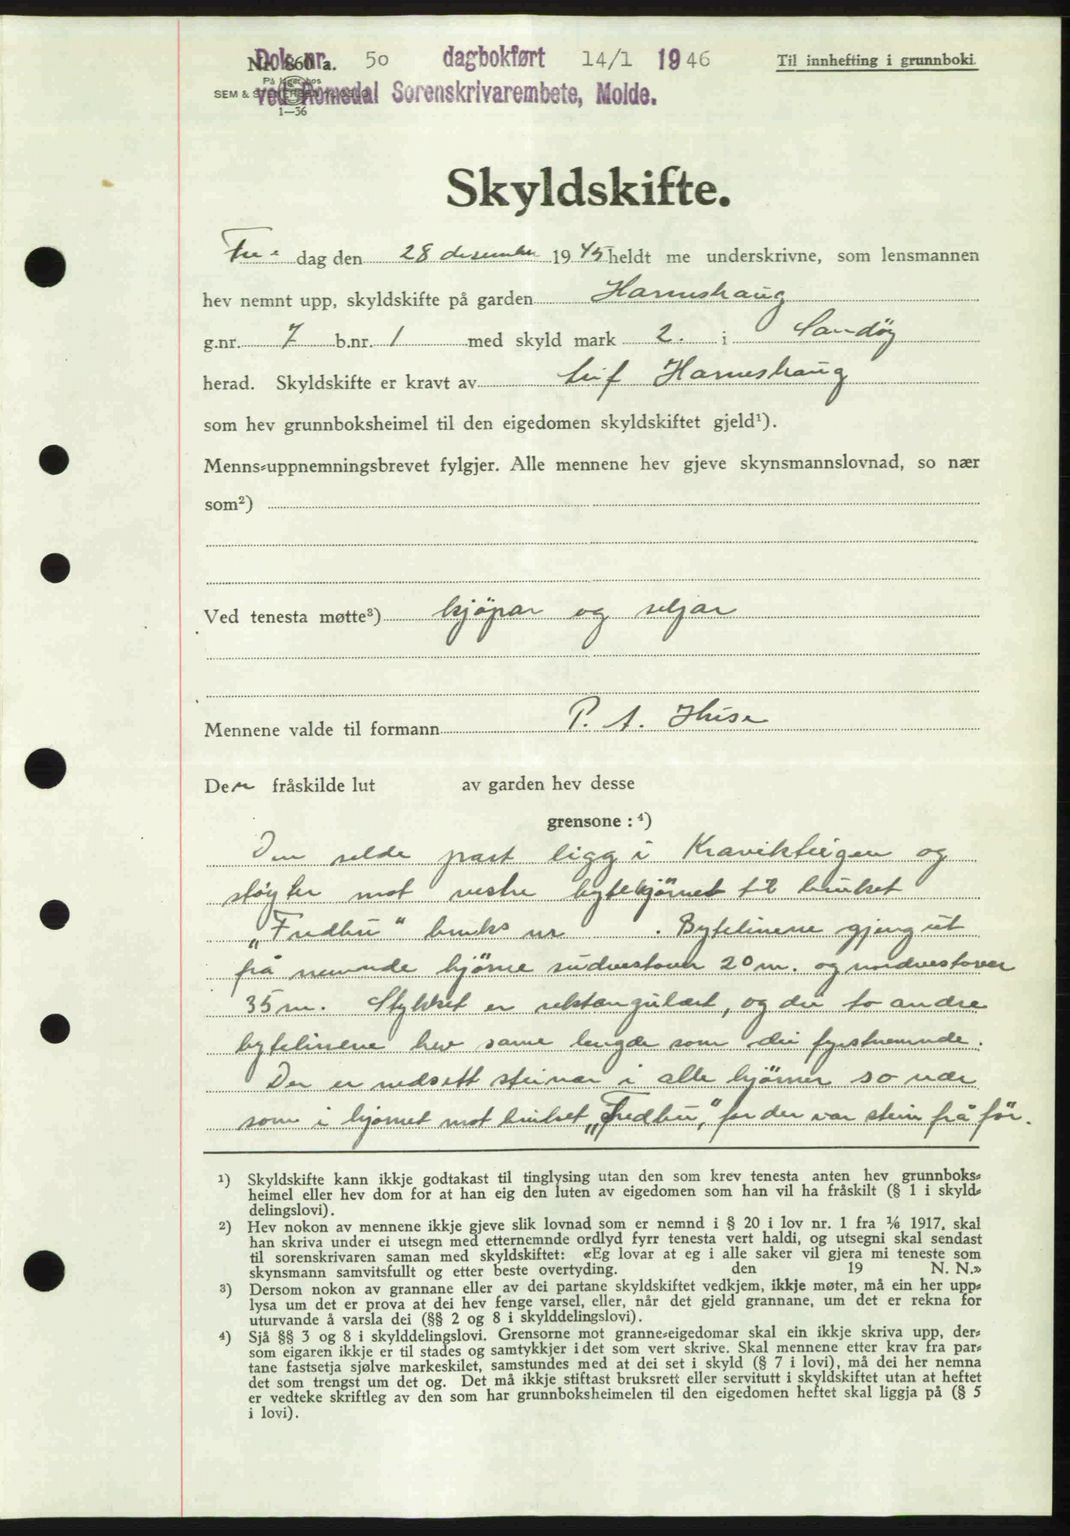 Dok. nr. 50 dagbokført 14/1 1946
Nr. 860 a.
Til innhefting i grunnboki.
På lager hos
ved Romsdal Sorenskrivarembete, Molde.
SEM &
1—36
Skyldskifte.
Fre- dag den 28 desember 1945 heldt me underskrivne, som lensmannen
hev nemnt upp, skyldskifte på garden Harneshaug
g.nr. 7 b.nr. 1 med skyld mark 2. i Sandöy
herad. Skyldskifte er kravt av Leif Harneshaug
som hev grunnboksheimel til den eigedomen skyldskiftet gjeld¹).
Menns-uppnemningsbrevet fylgjer. Alle mennene hev gjeve skynsmannslovnad, so nær
som²)
Ved tenesta møtte³) kjöpar og seljar
Mennene valde til formann P. A. Huse
Den fråskilde lut av garden hev desse
grensone : ⁴)
Den selde part ligg i Kravikteigen og
støyter mot vestre bytehjörnet til bruket
„Fredbu“ bruks nr . Bytelinene gjeng ut
frå nemnde hjörne südvestover 20 m. og nordvestover
35 m. Stykket er rektangulært, og dei to andre
bytelinene hev same lengde som dei fyrstnemnde.
Der er nedsett steinar i alle hjörner so nær
som i hjörnet mot bruket „Fredbu“, for der var stein frå för.
¹) Skyldskifte kann ikkje godtakast til tinglysing utan den som krev tenesta anten hev grunnboks-
heimel eller hev dom for at han eig den luten av eigedomen som han vil ha fråskilt (§ 1 i skyld-
delingslovi).
²) Hev nokon av mennene ikkje gjeve slik lovnad som er nemnd i § 20 i lov nr. 1 fra ⅙ 1917, skal
han skriva under ei utsegn med etternemnde ordlyd fyrr tenesta vert haldi, og utsegni skal sendast
til sorenskrivaren saman med skyldskiftet: «Eg lovar at eg i alle saker vil gjera mi teneste som
skynsmann samvitsfullt og etter beste overtyding. den 19 N. N.»
³) Dersom nokon av grannane eller av dei partane skyldskiftet vedkjem, ikkje møter, må ein her upp-
lysa um det er prova at dei hev fenge varsel, eller, når det gjeld grannane, um det er rekna for
uturvande å varsla dei (§§ 2 og 8 i skylddelingslovi).
⁴) Sjå §§ 3 og 8 i skylddelingslovi. Grensorne mot granne-eigedomar skal ein ikkje skriva upp, der-
som eigaren ikkje er til stades og samtykkjer i det som vert skrive. Skal mennene etter krav fra par-
tane fastsetja sjølve markeskilet, samstundes med at dei set i skyld (§ 7 i lovi), må dei her nemna
det som trengst um det og. Det må ikkje stiftast bruksrett eller servitutt i skyldskiftet utan at heftet
er vedteke skriftleg av den som har grunnboksheimelen til den eigedomen heftet skal liggja på (§ 5
i lovi).